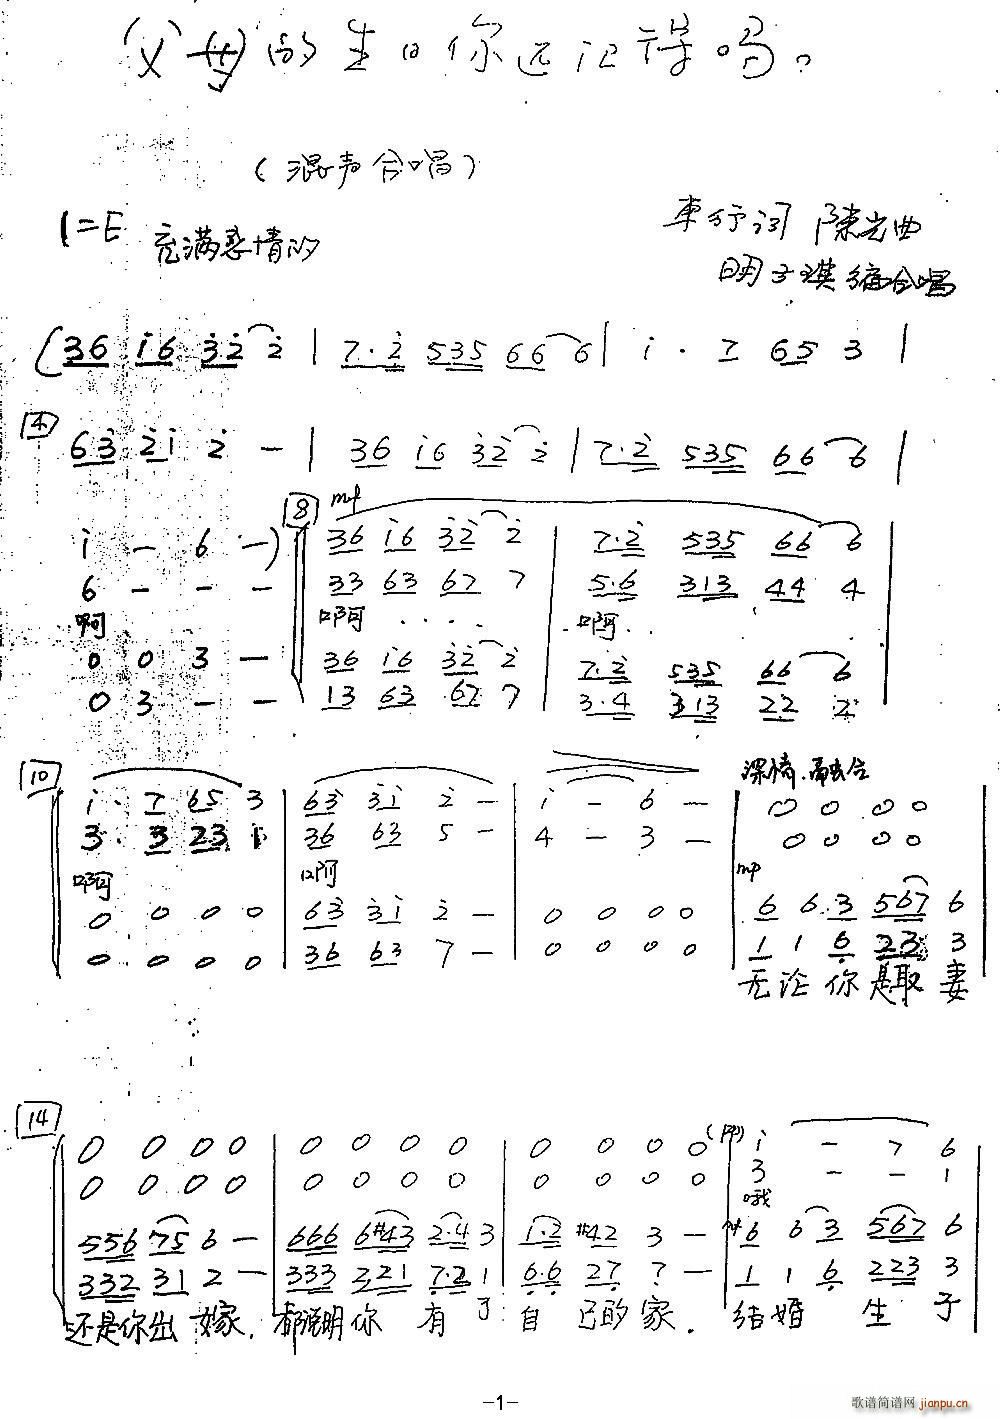 (父母)的生日你还记得吗?
(混声合唱)
1=E 充满感情的
车行词 陈光曲
明子琪编合唱
(36 i6 3̇2̇ 2̇ | 7·2̇ 535 66 6 | i · 7 65 3 |
4
63̇ 2̇i 2̇ — | 36 i6 3̇2̇ 2̇ | 7·2̇ 535 66 6 |
8 mf
i — 6 —) 36 i6 3̇2̇ 2̇ | 7·2̇ 535 66 6
6 — — — 33 63 67 7 | 5·6 313 44 4
啊 啊 · · · · 啊 · ·
0 0 3 — 36 i6 3̇2̇ 2̇ | 7·2̇ 535 66 6
0 3 — — 13 63 67 7 | 3·4 313 22 2
10 深情.融合
i · 7 65 3 | 63̇ 3̇i 2̇ — | i — 6 — | 0 0 0 0
3 · 3 23 1 | 36 63 5 — | 4 — 3 — | 0 0 0 0
啊 啊 mp
0 0 0 0 | 63̇ 3̇i 2̇ — | 0 0 0 0 | 6 6 3 567 6
0 0 0 0 | 36 63 7 — | 0 0 0 0 | 1 1 6̣ 23 3
无论你是取妻
14
0 0 0 0 | 0 0 0 0 | 0 0 0 0 (pp) | i — 7 6
0 0 0 0 | 0 0 0 0 | 0 0 0 0 | 3 — — 1
哦
556 75 6 — | 666 6#43 2·4 3 | 1·2 #42 3 — | 6 6 3 567 6
332 31 2 — | 333 221 7̣·2 1 | 6̣·6̣ 27̣ 7̣ — | 1 1 6̣ 223 3
还是你出嫁, 都说明你有了自己的家. 结婚生子
-1-
歌谱简谱网 jianpu.cn